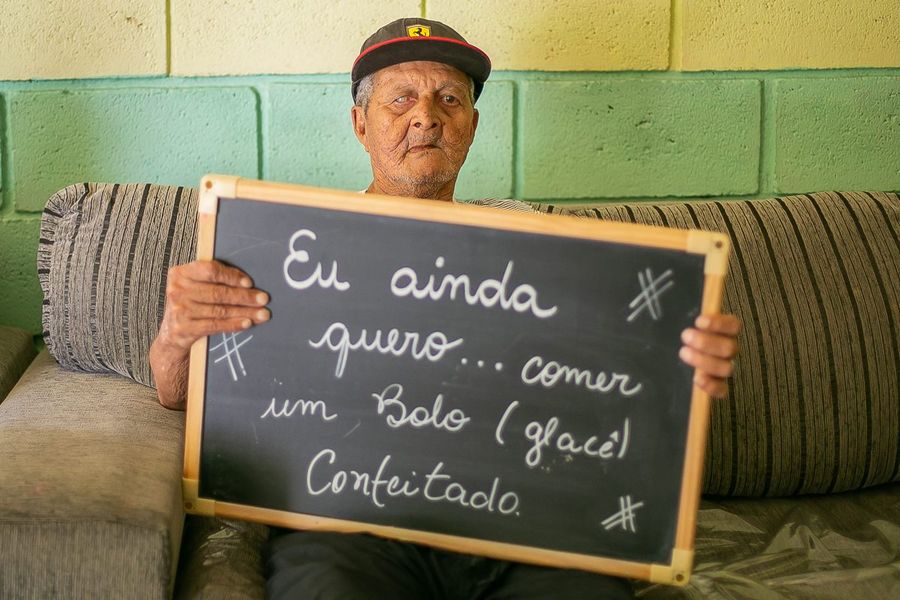 Eu ainda #
# quero... comer
um Bolo (glacê)
Confeitado. #